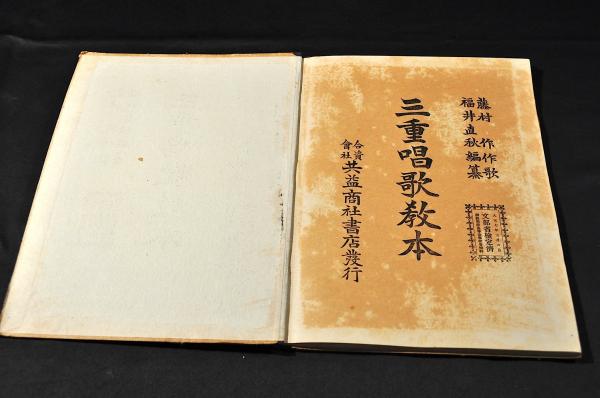 藤村 作 作歌
福井直秋編纂
三重唱歌教本
文部省検定済
合資
會社
共益商社書店發行